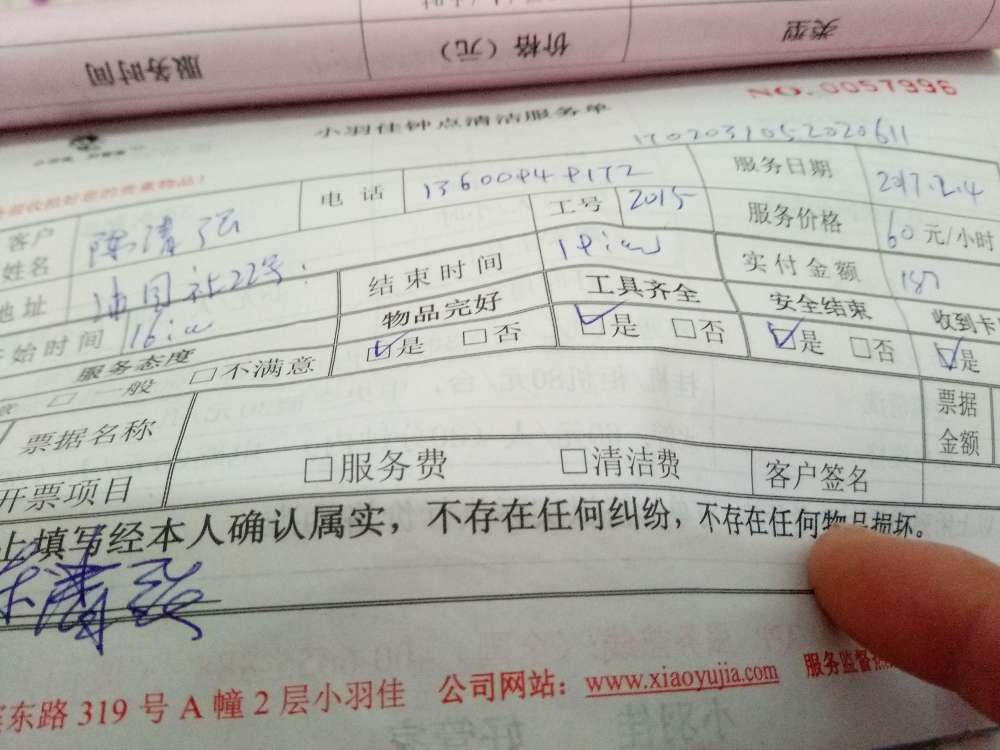 服务时间 价格（元） 类型
NO.0057996
小羽佳钟点清洁服务单
1702031052020611
客户姓名 陈清弘 电话 服务日期 2017.2.4
工号 2015 服务价格 60元/小时
地址 结束时间 实付金额
开始时间 物品完好 工具齐全 安全结束 收到卡
服务态度 ☑是 □否 ☑是 □否 ☑是 □否 ☑是
□一般 □不满意
票据名称 票据金额
开票项目 □服务费 □清洁费 客户签名
上填写经本人确认属实，不存在任何纠纷，不存在任何物品损坏。
东路319号A幢2层小羽佳 公司网站：www.xiaoyujia.com 服务监督热